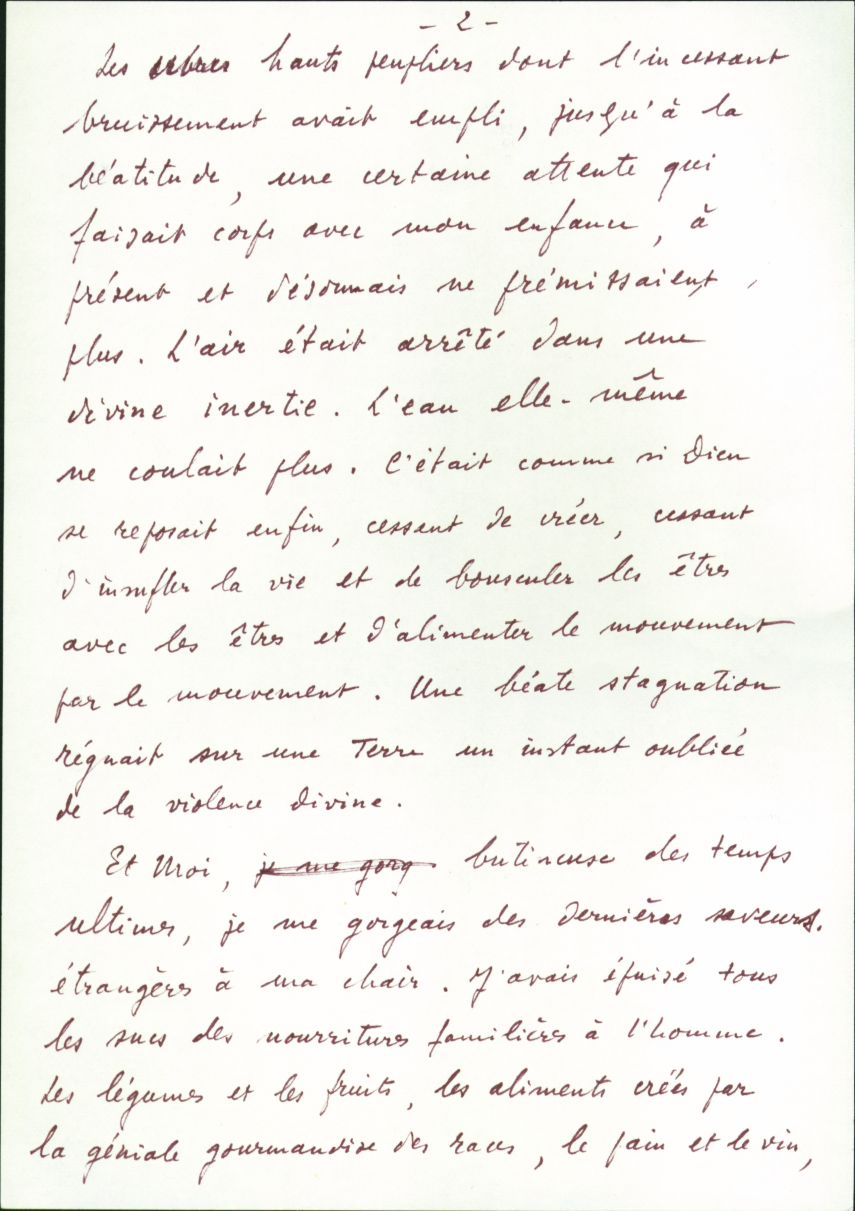 - 2 -
Les arbres hauts peupliers dont l'incessant
bruissement avait empli, jusqu'à la
béatitude, une certaine attente qui
faisait corps avec mon enfance, à
présent et désormais ne frémissaient
plus. L'air était arrêté dans une
divine inertie. L'eau elle-même
ne coulait plus. C'était comme si Dieu
se reposait enfin, cessant de créer, cessant
d'insuffler la vie et de bousculer les êtres
avec les êtres et d'alimenter le mouvement
par le mouvement. Une béate stagnation
régnait sur une Terre un instant oubliée
de la violence divine.
Et Moi, je me gorg butineuse des temps
ultimes, je me gorgeais des dernières saveurs.
étrangères à ma chair. J'avais épuisé tous
les sucs des nourritures familières à l'homme.
Les légumes et les fruits, les aliments créés par
la géniale gourmandise des races, le pain et le vin,